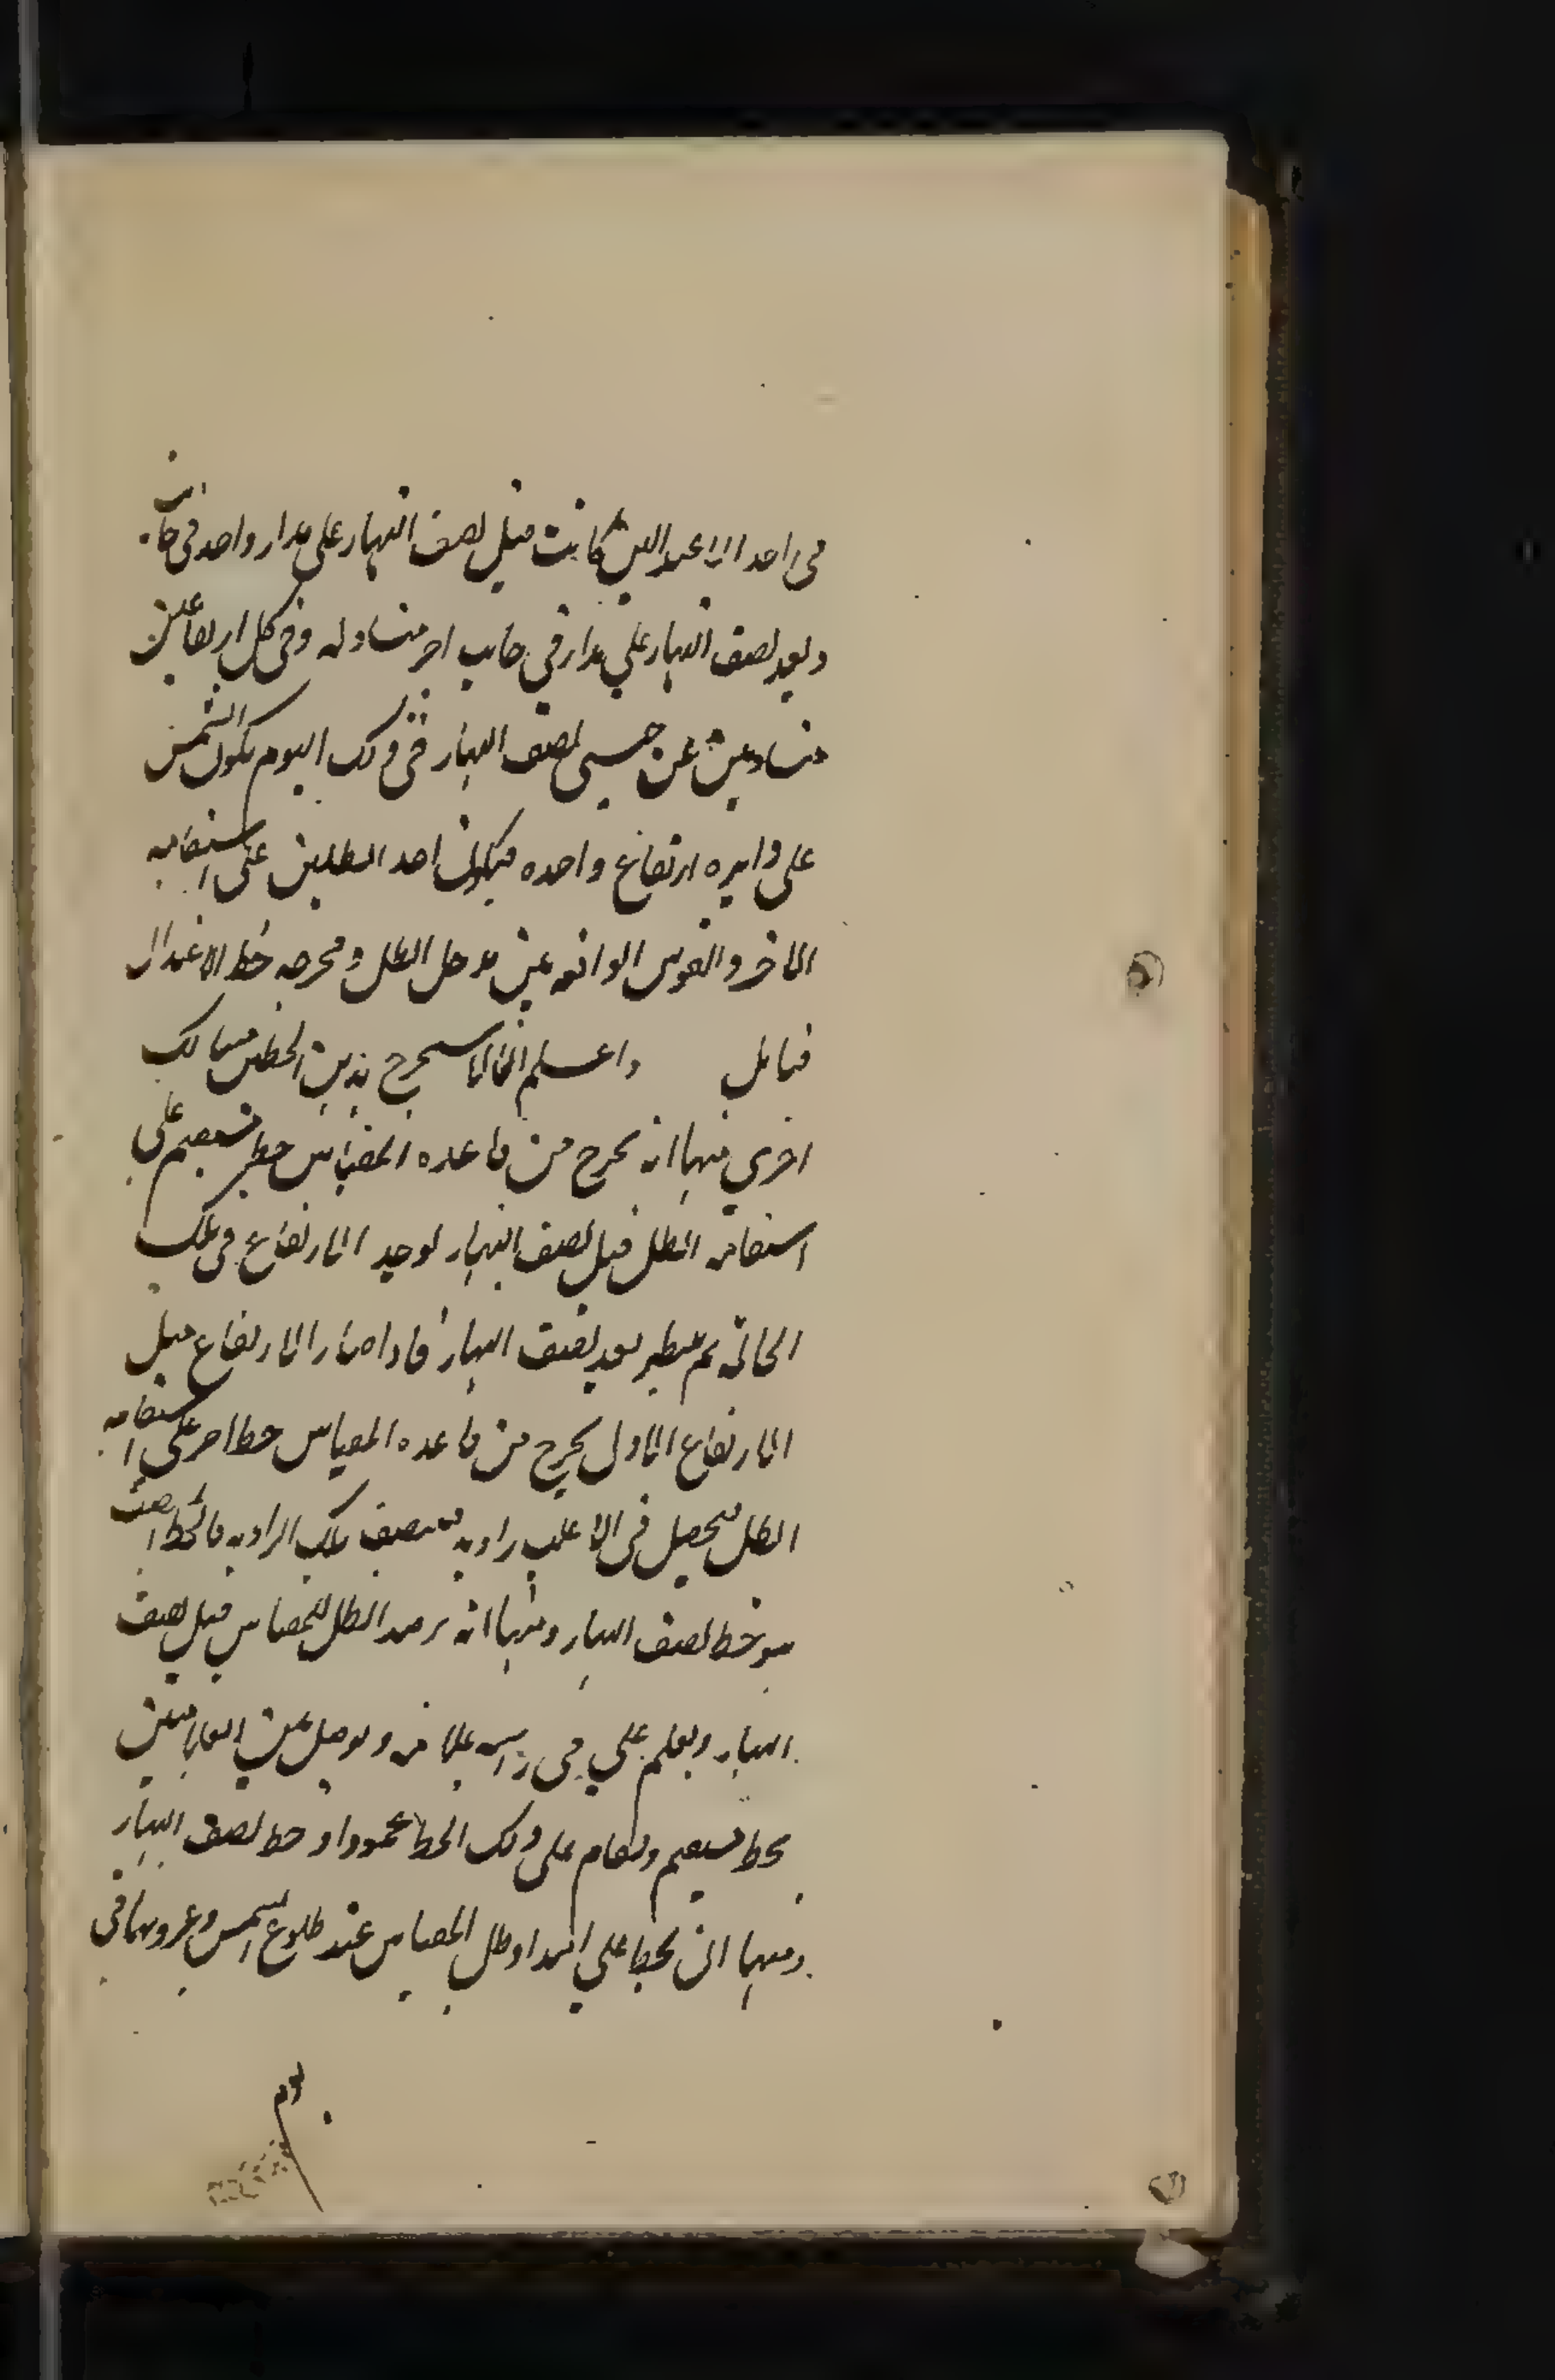 في احد الاعتدالين كانت قبل نصف النهار على مدار واحد في جانب
وبعد نصف النهار على مدار في جانب اخر متساو له وفي كل ارتفاعين
متساويين عن جنبتي نصف النهار في ذلك اليوم يكون الشمس
على دايره ارتفاع واحده فيكون احد الظلين على استقامه
الاخر والقوس الواقعه بين مدخل الظل ومخرجه خط الاعتدال
فتامل واعلم ان لاستخراج هذين الخطين مسالك
اخري منها انه يخرج من قاعده المقياس خط مستقيم على
استقامه الظل قبل نصف النهار يوجد الارتفاع في تلك
الحاله ثم ينتظر بعد نصف النهار فاذا صار الارتفاع مثل
الارتفاع الاول يخرج من قاعده المقياس خط اخر على استقامه
الظل فيحصل في الاغلب زاويه فينصف تلك الزاويه فالخط المنصف
هو خط نصف النهار ومنها انه يرصد الظل للمقياس قبل نصف
النهار ويعلم علي راسه علامه ويوصل بين العلامتين
بخط مستقيم ويقام على ذلك الخط عمودا وخط نصف النهار
ومنها ان يخط علي امتداد ظل المقياس عند طلوع الشمس وغروبها في
يوم